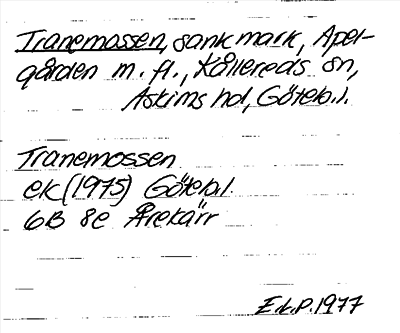 Tranemossen, sank mark, Apel-
gården m. fl., Kållereds sn,
Askims hd, Göteb.l.
Tranemossen
ek (1975) Göteb.l.
6B 8e Årekärr
E.L.P. 1977